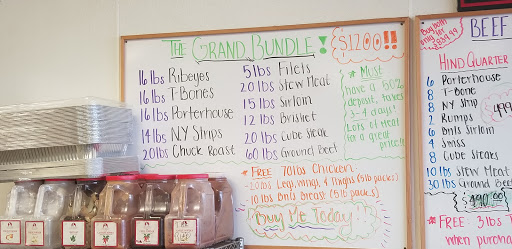 THE GRAND BUNDLE! $1200!!
16 lbs Ribeyes
16 lbs T-Bones
16 lbs Porterhouse
14 lbs NY Strips
20 lbs Chuck Roast
5 lbs Filets
20 lbs Stew Meat
15 lbs Sirloin
12 lbs Brisket
20 lbs Cube Steak
60 lbs Ground Beef
* Must
have a 50%
deposit, takes
3-4 days!
Lots of meat
for a great
price!
* FREE 70lbs Chicken
-20lbs Legs, wings, & Thighs (5 lb packs)
10 lbs Bnls Breast (5 lb packs)
Buy Me Today!
Buy both
only for
BEEF
HIND QUARTER
6 Porterhouse
8 T-Bone
8 NY Strip
2 Rumps
6 Bnls Sirloin
4 Swiss
8 Cube Steaks
10 lbs Stew Meat
30 lbs Ground Beef
* FREE: 3 lbs
when purchase